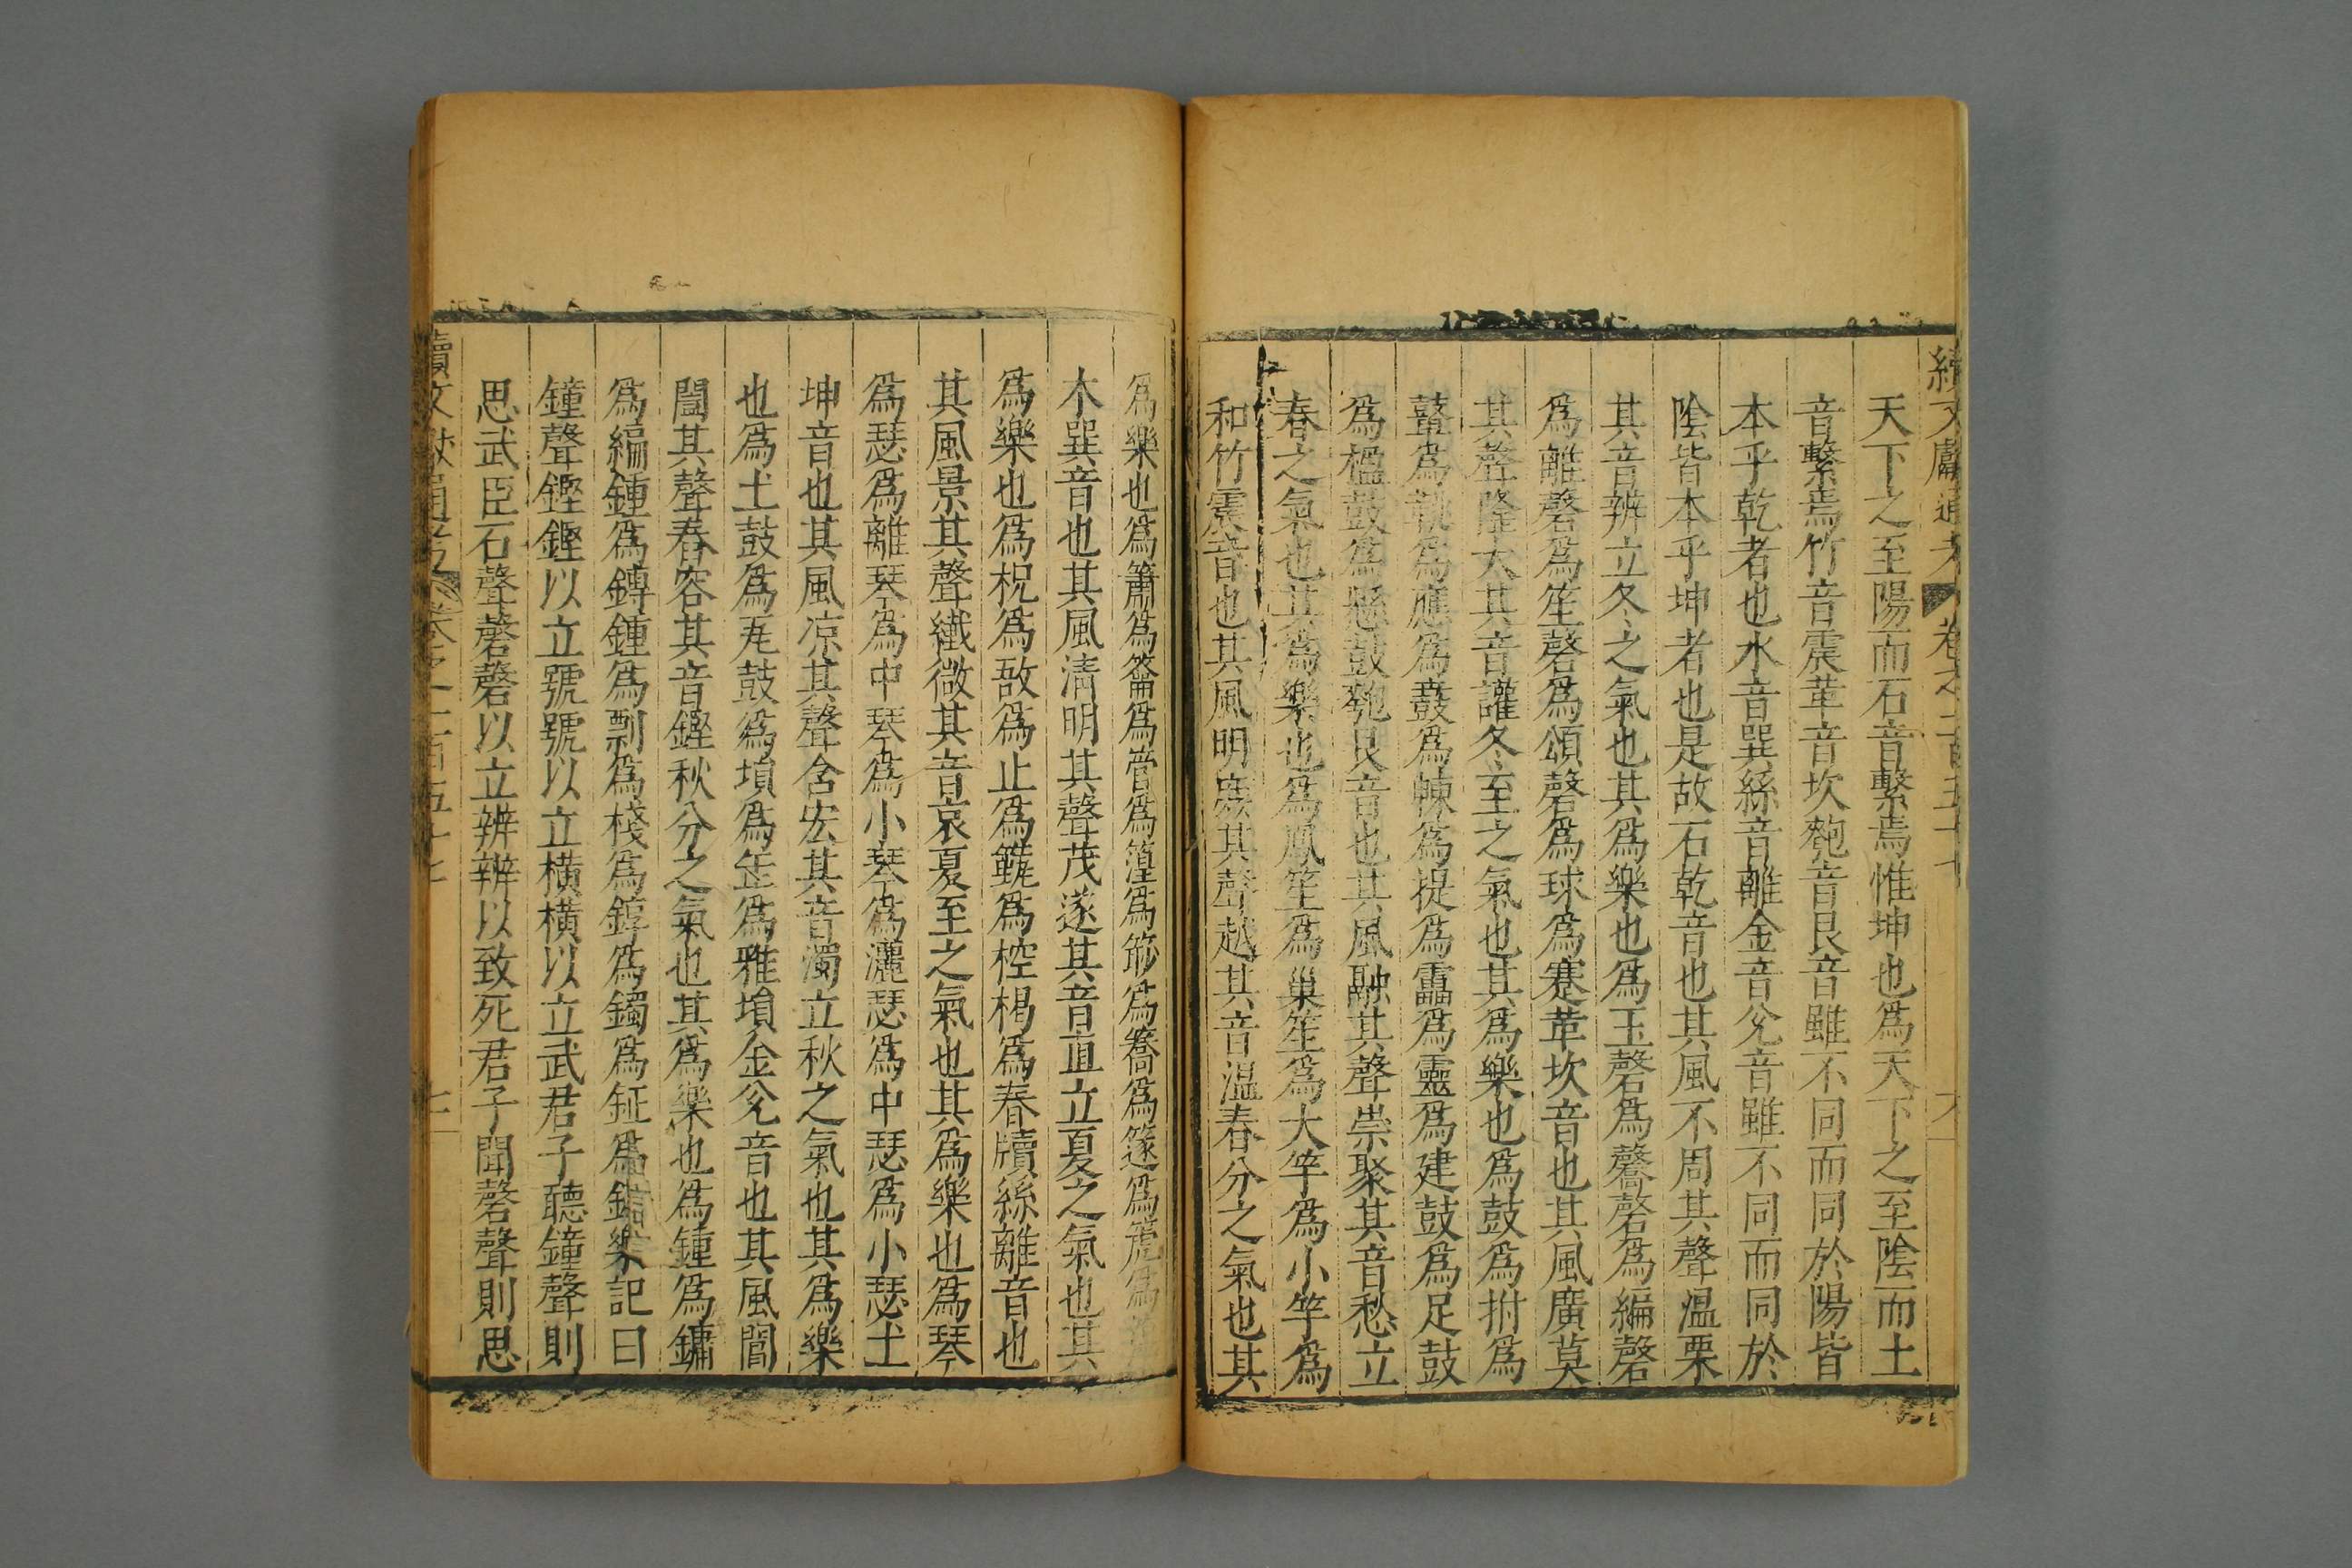 續文獻通考 卷之一百五十七
天下之至陽而石音繫焉惟坤也為天下之至陰而土
音繫焉竹音震革音坎匏音艮音雖不同而同於陽皆
本乎乾者也木音巽絲音離金音兌音雖不同而同於
陰皆本乎坤者也是故石乾音也其風不周其聲溫栗
其音辨立冬之氣也其為樂也為玉磬為毊磬為編磬
為離磬為笙磬為頌磬為球為蹇革坎音也其風廣莫
其聲隆大其音讙冬至之氣也其為樂也為鼓為拊為
鼖為鞀為應為鼛為朄為提為靁為靈為建鼓為足鼓
為楹鼓為懸鼓匏艮音也其風融其聲崇聚其音愁立
春之氣也其為樂也為鳳笙為巢笙為大竽為小竽為
和竹震音也其風明庶其聲越其音溫春分之氣也其
為樂也為簫為籥為管為篞為篎為簥為篴為箎為
木巽音也其風清明其聲茂遂其音直立夏之氣也其
為樂也為柷為敔為止為籈為椌楬為春牘絲離音也
其風景其聲纖微其音哀夏至之氣也其為樂也為琴
為瑟為離琴為中琴為小琴為灑瑟為中瑟為小瑟土
坤音也其風凉其聲含宏其音濁立秋之氣也其為樂
也為土鼓為瓦鼓為塤為缶為雅塤金兌音也其風閶
闔其聲舂容其音鏗秋分之氣也其為樂也為鍾為鏞
為編鍾為鎛鍾為剽為棧為錞為鐲為鉦為鐃樂記曰
鐘聲鏗鏗以立號號以立橫橫以立武君子聽鐘聲則
思武臣石聲磬磬以立辨辨以致死君子聞磬聲則思
續文獻通考 卷之一百五十七